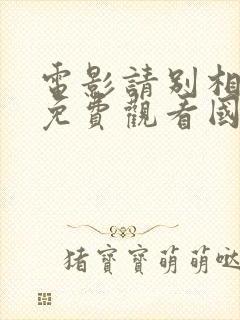 電影請別相
免費觀看國
猪寶寶萌萌哒